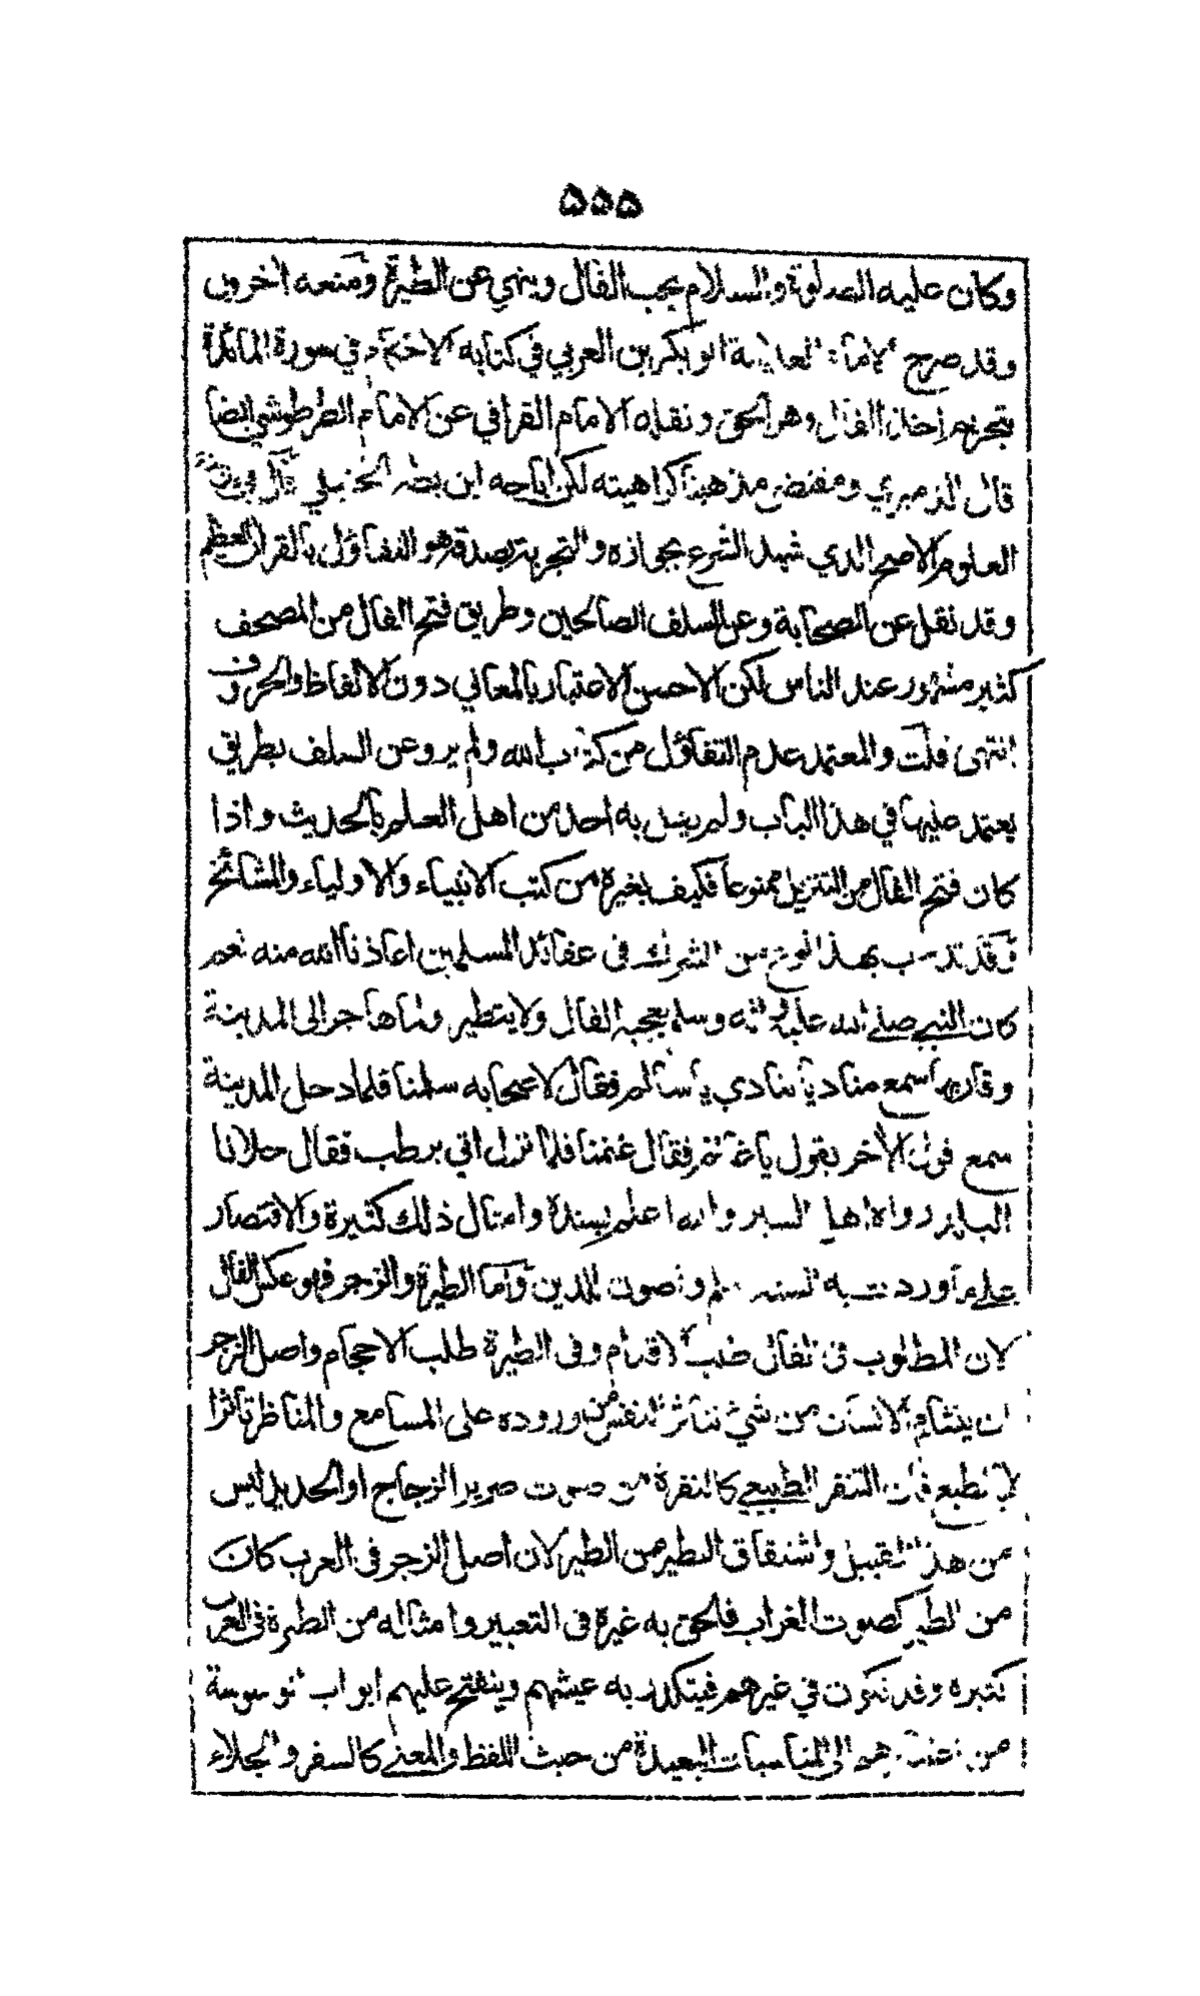 ۵۵۵
وكان عليه الصلوة والسلام يحب الفال وينهي عن الطيرة ومنعه آخرون
وقد صرح الامام العلامة ابو بكر بن العربي في كتابه الاحكام في سورة المائدة
بتحريم اخذ الفال وهو الحق ونقله الامام القرافي عن الامام الطرطوشي ايضا
قال الدميري ومقتضى مذهبنا كراهيته لكن اباحه ابن بطه الحنبلي قال في
العلوم الاصح الذي شهد الشرع بجوازه والتجربة بصدقه هو التفاؤل بالقرآن العظيم
وقد نقل عن الصحابة وعن السلف الصالحين وطريق فتح الفال من المصحف
كثير مشهور عند الناس لكن الاحسن الاعتبار بالمعاني دون الالفاظ والحروف
انتهى قلت والمعتمد عدم التفاؤل من كتاب الله ولم يرو عن السلف بطريق
يعتمد عليها في هذا الباب ولم يقل به احد من اهل العلم بالحديث واذا
كان فتح الفال من التنزيل ممنوعا فكيف بغيره من كتب الانبياء والاولياء والمشائخ
وقد تدرب بهذا النوع من الشرك في عقائد المسلمين اعاذنا الله منه نعم
كان النبي صلى الله عليه وآله وسلم يعجبه الفال ولا يتطير ولما هاجر الى المدينة
وقاربها سمع مناديا ينادي يا سالم فقال لاصحابه سلمنا فلما دخل المدينة
سمع قول الآخر يقول يا غانم فقال غنمنا فلما نزل اتي برطب فقال حلا لنا
البلد رواه اهل السير والله اعلم بسنده وامثال ذلك كثيرة والاقتصار
على ما وردت به السنة اسلم واصون للدين واما الطيرة والزجر فهو عكس الفال
لان المطلوب في الفال طلب الاقدام وفي الطيرة طلب الاحجام واصل الزجر
ان يتشام الانسان من شيء تتاثر النفس من وروده على المسامع والمناظر تاثرا
لا بالطبع فان التنفر الطبيعي كالنفرة من صوت صرير الزجاج او الحديد ليس
من هذا القبيل واشتقاق التطير من الطير لان اصل الزجر في العرب كان
من الطير كصوت الغراب فالحق به غيره في التعبير وامثاله من الطيرة في العرب
كثيره وقد تكون في غيرهم فيتكدر به عيشهم وينفتح عليهم ابواب الوسوسة
من اعتبارهم الى المناسبات البعيدة من حيث اللفظ والمعنى كالسفر والجلاء